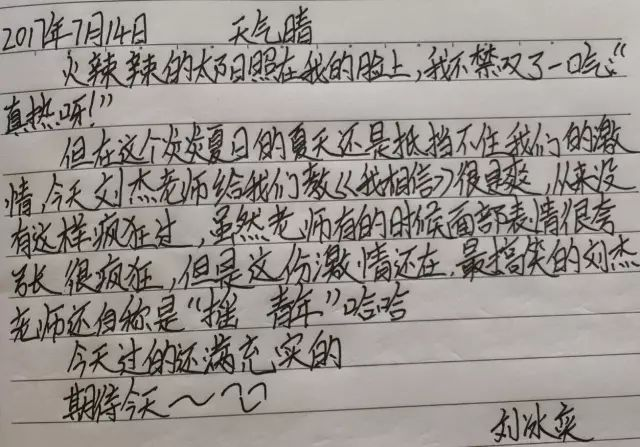 2017年7月14日 天气晴
火辣辣的太阳照在我的脸上,我不禁叹了一口气:“
真热呀!”
但在这个炎炎夏日的夏天还是抵挡不住我们的激
情,今天刘杰老师给我们教《我相信》很是爽,从来没
有这样疯狂过,虽然老师有的时候面部表情很夸
张很疯狂,但是这份激情还在,最搞笑的刘杰
老师还自称是“摇 青年”哈哈
今天过的还满充实的
期待今天~
刘冰奕